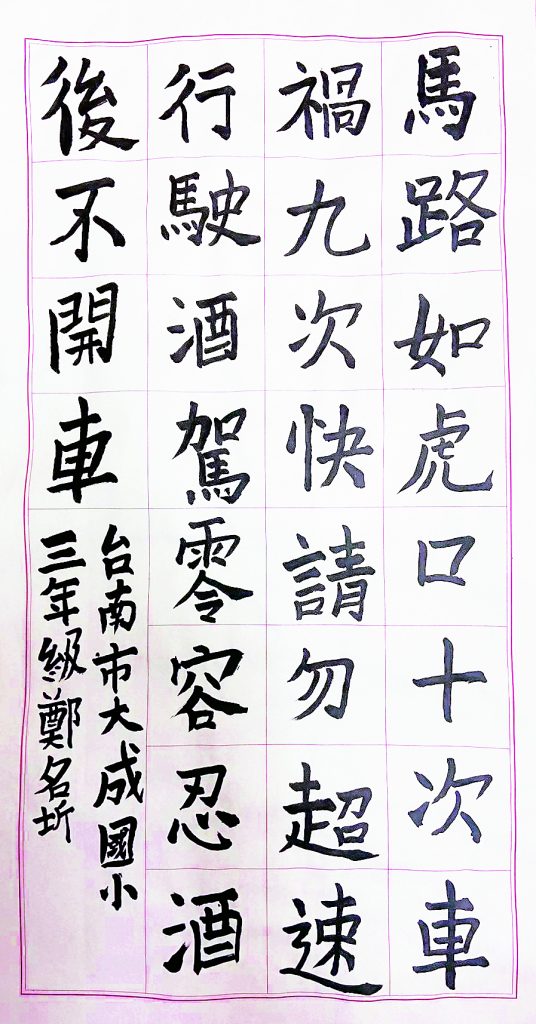 馬路如虎口十次車
禍九次快請勿超速
行駛酒駕零容忍酒
後不開車
台南市大成國小
三年級鄭名圻